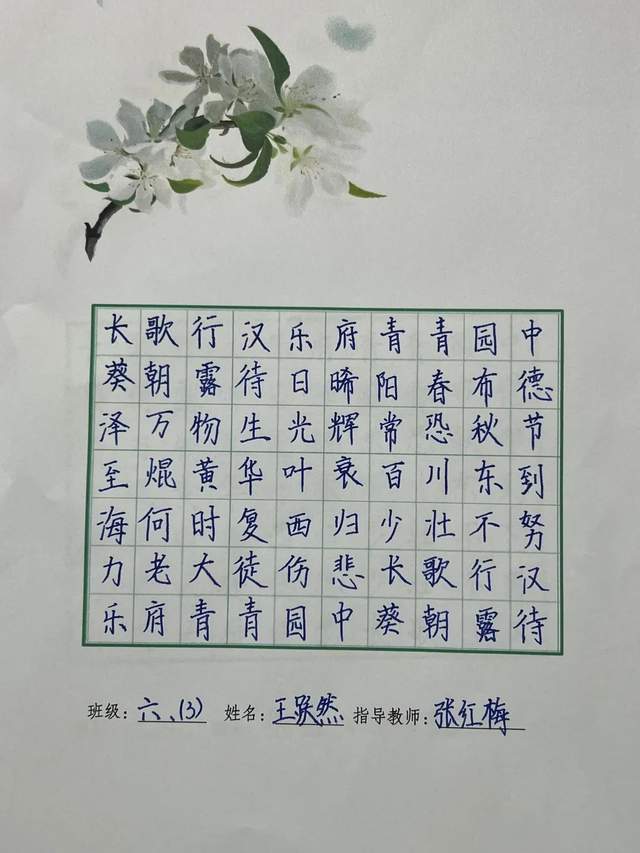 长歌行汉乐府青青园中
葵朝露待日晞阳春布德
泽万物生光辉常恐秋节
至焜黄华叶衰百川东到
海何时复西归少壮不努
力老大徒伤悲长歌行汉
乐府青青园中葵朝露待
班级：六、(3) 姓名：王跃然 指导教师：张红梅